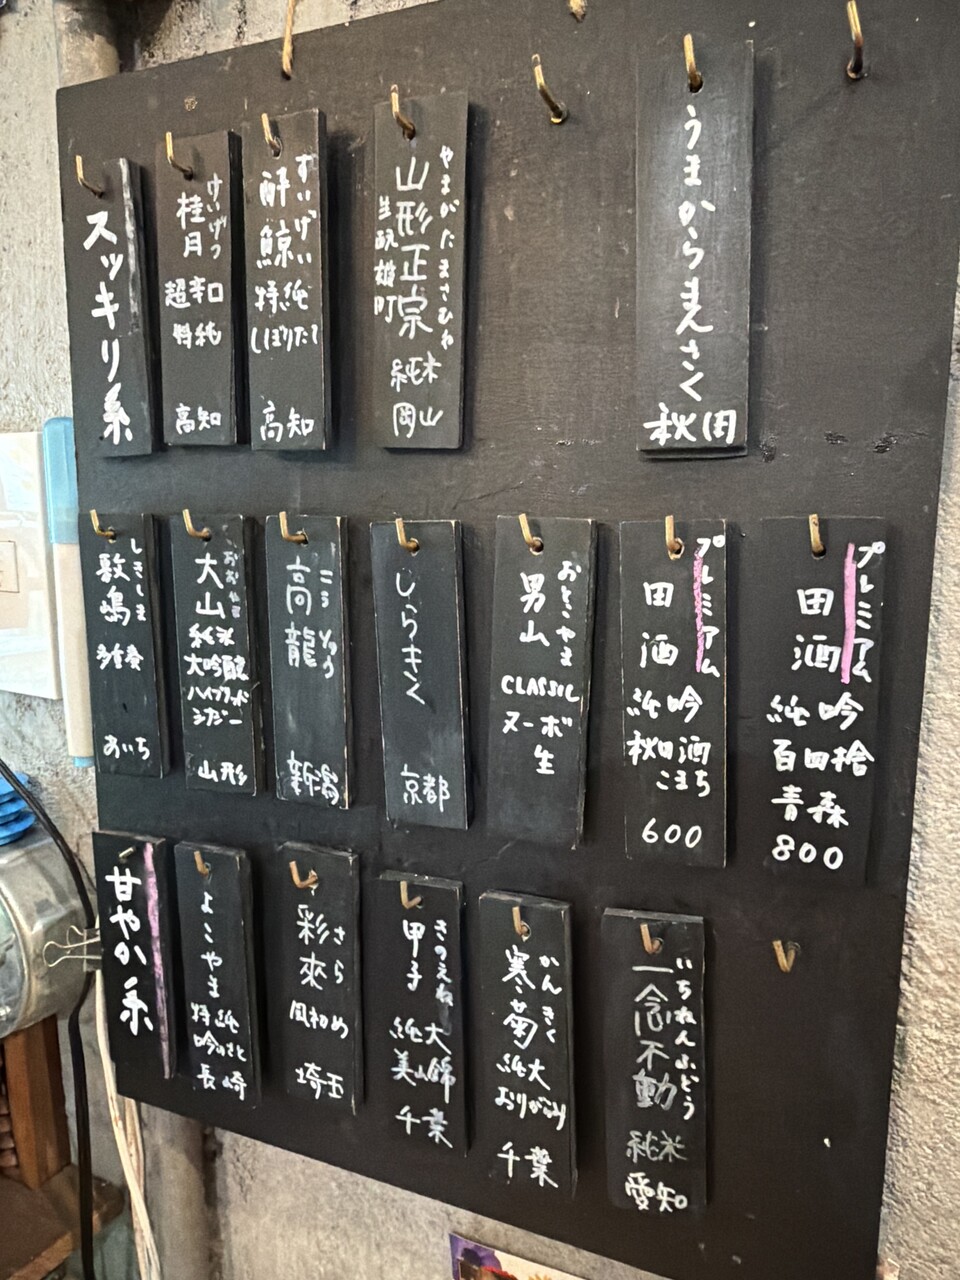 スッキリ系
けいげつ
桂月
超辛口
特純
高知
すいげい
酔鯨
特純
しぼりたて
高知
やまがたまさむね
山形正宗
生酛雄町
純米
岡山
うまからまんさく
秋田
しきしま
敷嶋
あいち
おおやま
大山
純米
大吟醸
ハイブリッド
山形
こうりゅう
高龍
新潟
しらきく
京都
おとこやま
男山
CLASSIC
ヌーボ
生
プレミアム
田酒
純吟
秋田酒
こまち
600
プレミアム
田酒
純吟
百田捨
青森
800
甘やか系
よこやま
特純
吟のさと
長崎
さら
彩來
凪初め
埼玉
きのえね
甲子
純大
美山錦
千葉
かんきく
寒菊
純大
おりがらみ
千葉
いちねんふどう
一念不動
純米
愛知